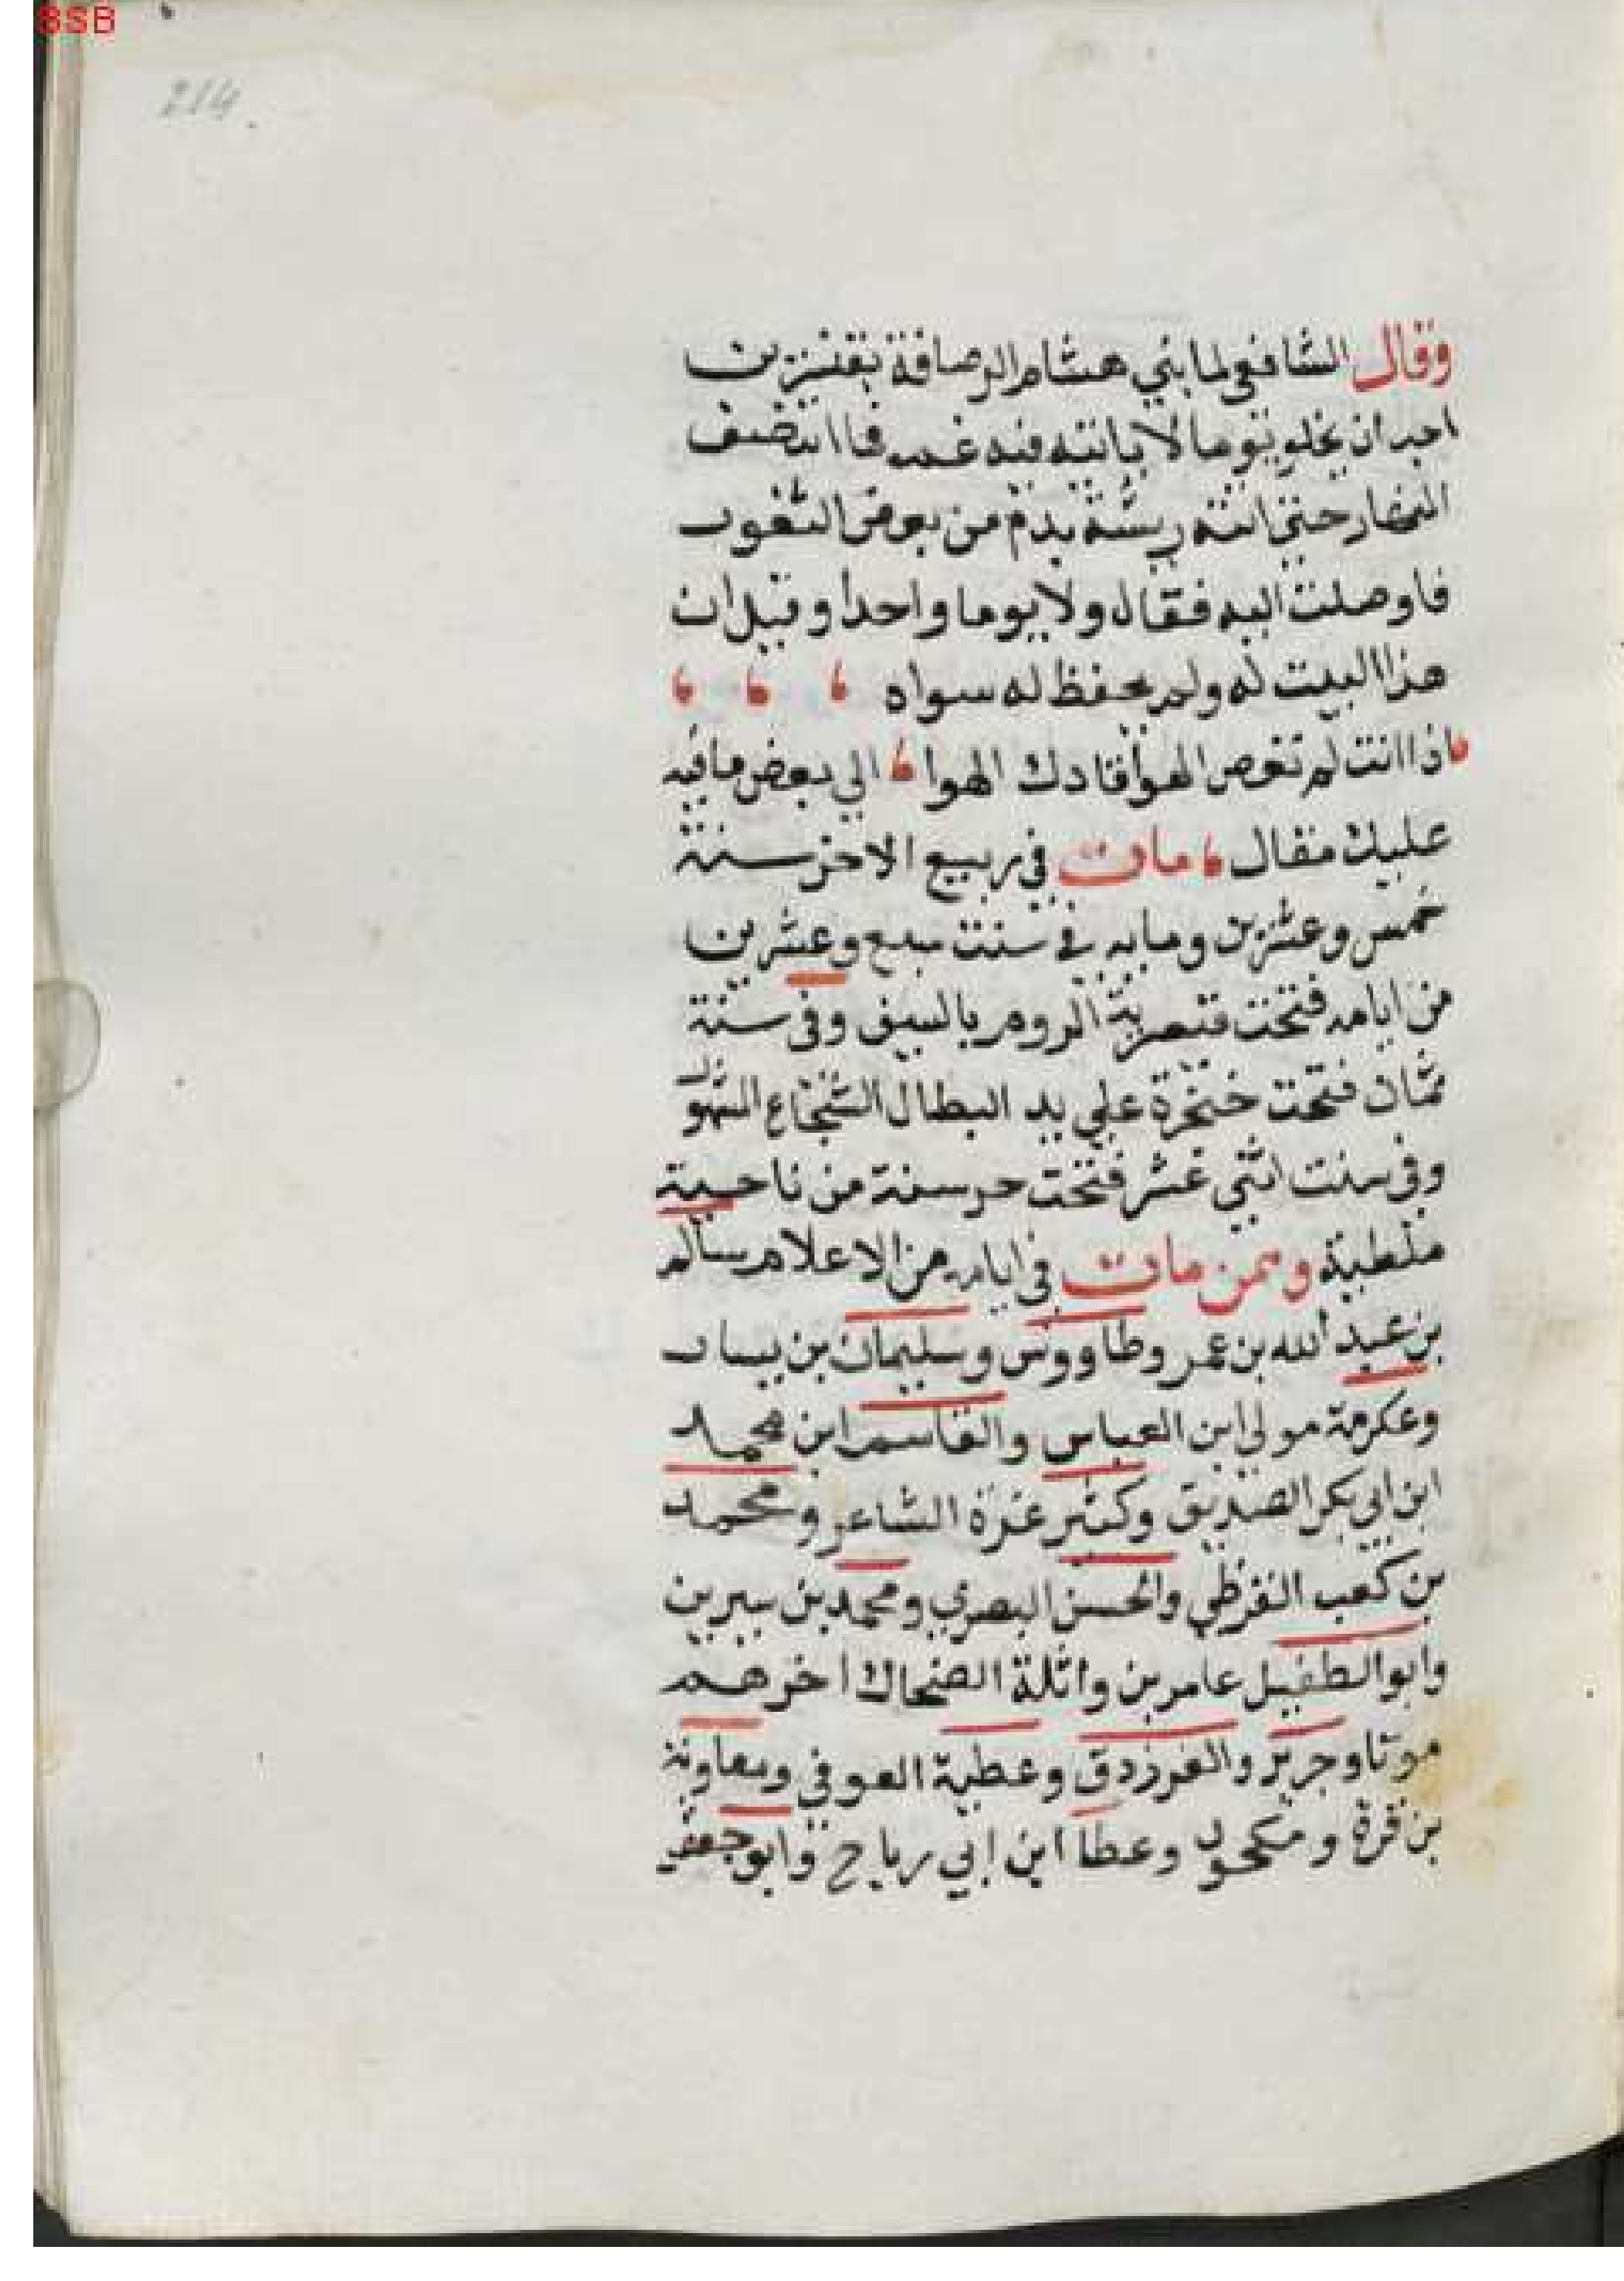 BSB
214.
وقال الشافعي لما بني هشام الرصافة بقنزين
احب ان يخلو يوما لا ياتيه فيه غم فما انتصف
النهار حتى اتته ريشة بدم من بعض الثغور
فاوصلت اليه فقال ولا يوما واحدا وقيل ان
هذا البيت له ولم يحفظ له سواه
اذا انت لم تعص الهوا قادك الهوا الي بعض ما فيه
عليك مقال مات في ربيع الاخر سنة
خمس وعشرين ومايه في سنت سبع وعشرين
من ايامه فتحت قيصرية الروم بالسيف وفي سنة
ثمان فتحت خنجرة علي يد البطال الشجاع المشهور
وفي سنت اثني عشر فتحت حرسنة من ناحية
ملطية وممن مات في ايامه من الاعلام سالم
بن عبد الله بن عمر وطاووس وسليمان بن يسار
وعكرمة مولي ابن العباس والقاسم ابن محمد
ابن ابي بكر الصديق وكثير عزة الشاعر ومحمد
بن كعب القرظي والحسن البصري ومحمد بن سيرين
وابو الطفيل عامر بن واثلة الضحاك اخرهم
موتا وجرير والفرزدق وعطية العوفي ومعاوية
بن قرة ومكحول وعطا ابن ابي رباح وابو جعفر